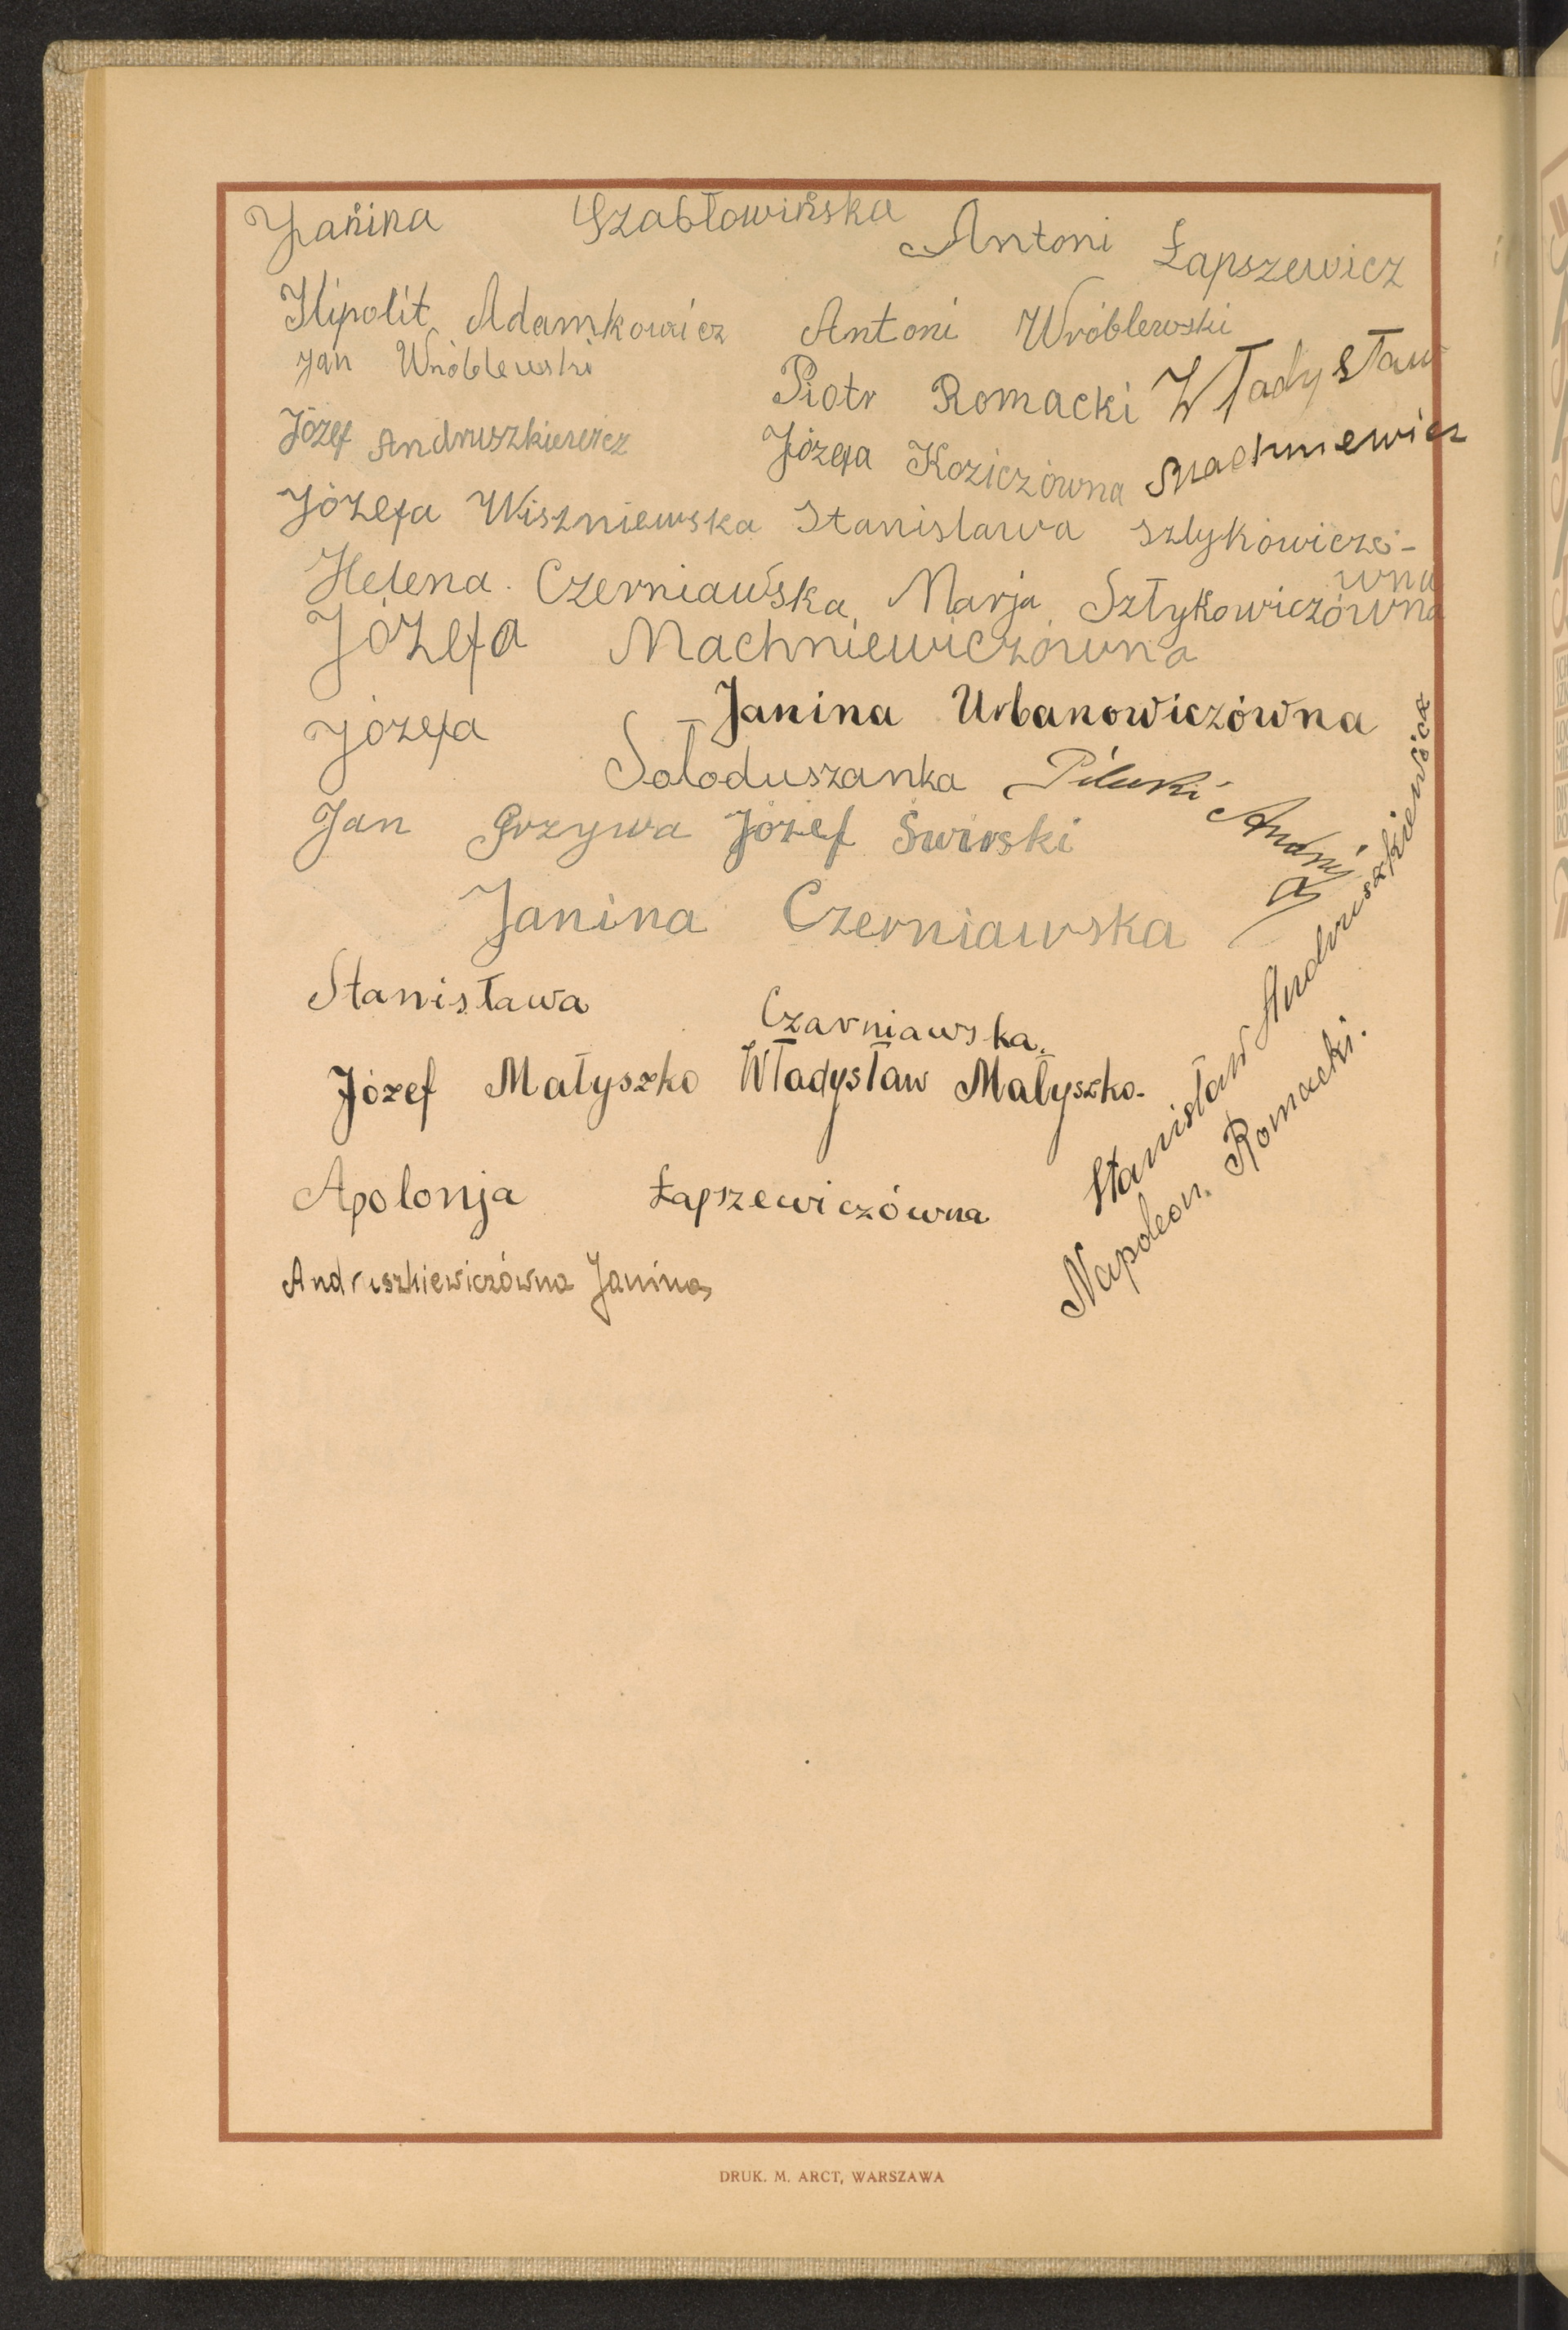 Janina Szabłowińska
Antoni Łapszewicz
Hipolit Adamkowicz Antoni Wróblewski
Jan Wróblewski
Piotr Romacki Władysław
Józef Andruszkiewicz
Józefa Koziczówna Machniewicz
Józefa Wiszniewska Stanisława Sztykowiczó-
wna
Helena Czerniawska Marja Sztykowiczówna
Józefa Machniewiczówna
Janina Urbanowiczówna
Józefa Sołoduszanka
Jan Grzywa Józef Świrski
Janina Czerniawska
Stanisława Czarniawska.
Józef Małyszko Władysław Małyszko.
Stanisław Andruszkiewicz
Napoleon Romacki.
Apolonja Łapszewiczówna
Andruszkiewiczówna Janina
DRUK. M. ARCT, WARSZAWA